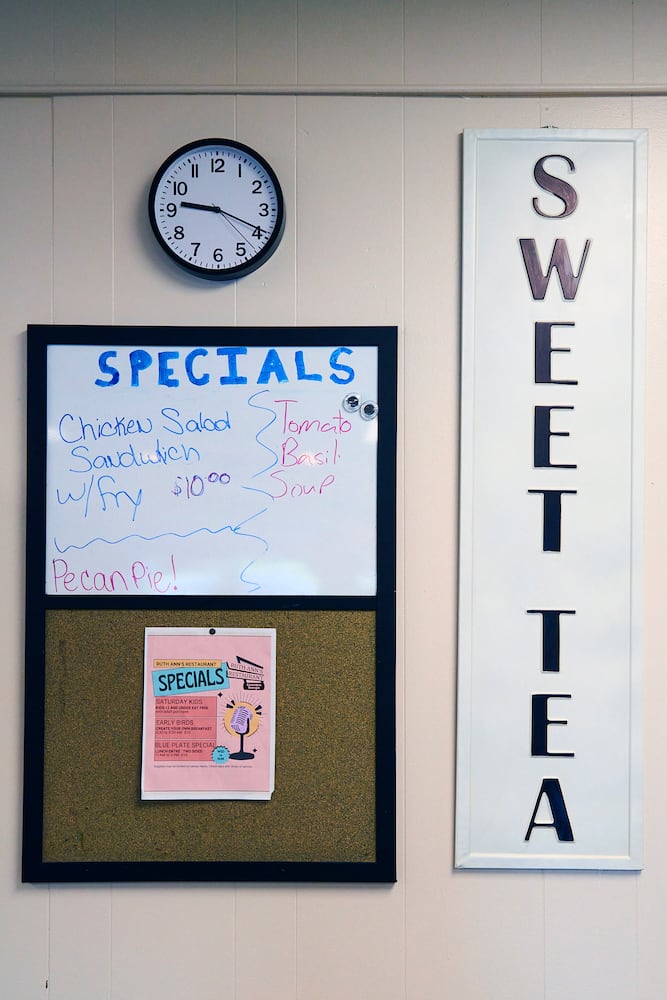 12
11
1
10
2
9
3
8
4
7
5
6
SPECIALS
Chicken Salad
Sandwich
w/fry $10.00
Tomato
Basil
Soup
Pecan Pie!
RUTH ANN'S RESTAURANT
SPECIALS
RUTH ANN'S
RESTAURANT
SATURDAY KIDS
KIDS 12 AND UNDER EAT FREE
EARLY BIRDS
CREATE YOUR OWN BREAKFAST
BLUE PLATE SPECIAL
S
W
E
E
T
T
E
A